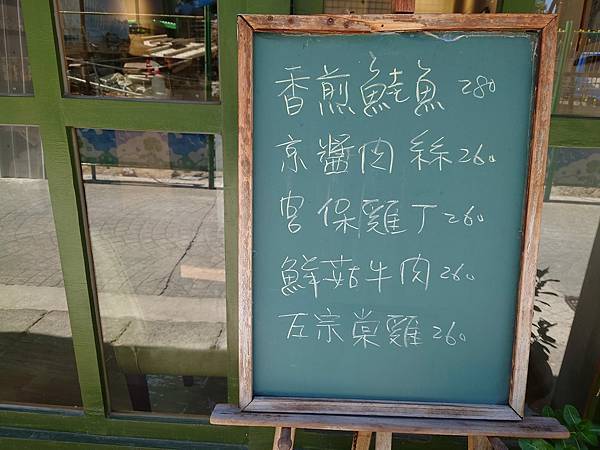 香煎鮭魚 280
京醬肉絲 260
宮保雞丁 260
鮮菇牛肉 260
左宗棠雞 260